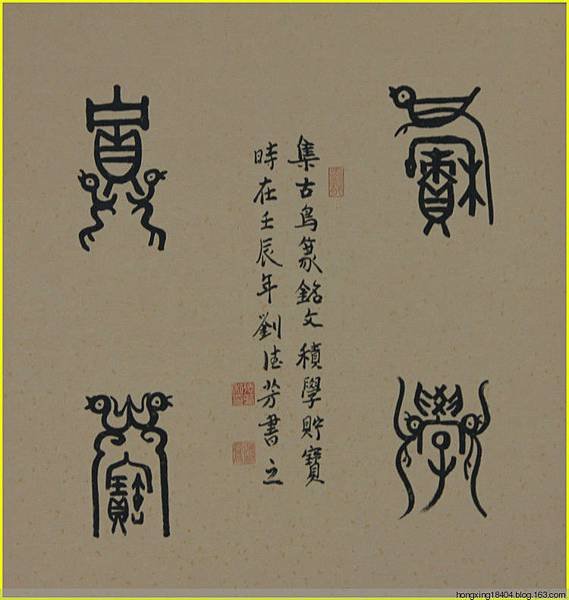 積
學
集古鳥篆銘文積學貯寶
時在壬辰年劉芳書之
貯
寶
hongxing18404.blog.163.com